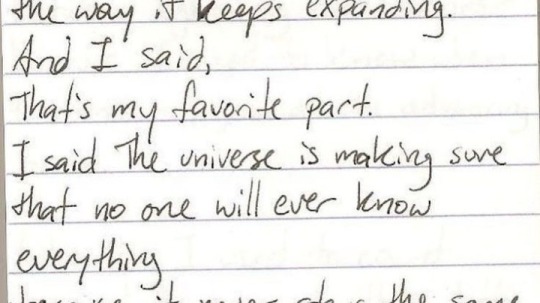 the way it keeps expanding.
And I said,
That's my favorite part.
I said The universe is making sure
that no one will ever know
everything
because it never stays the same